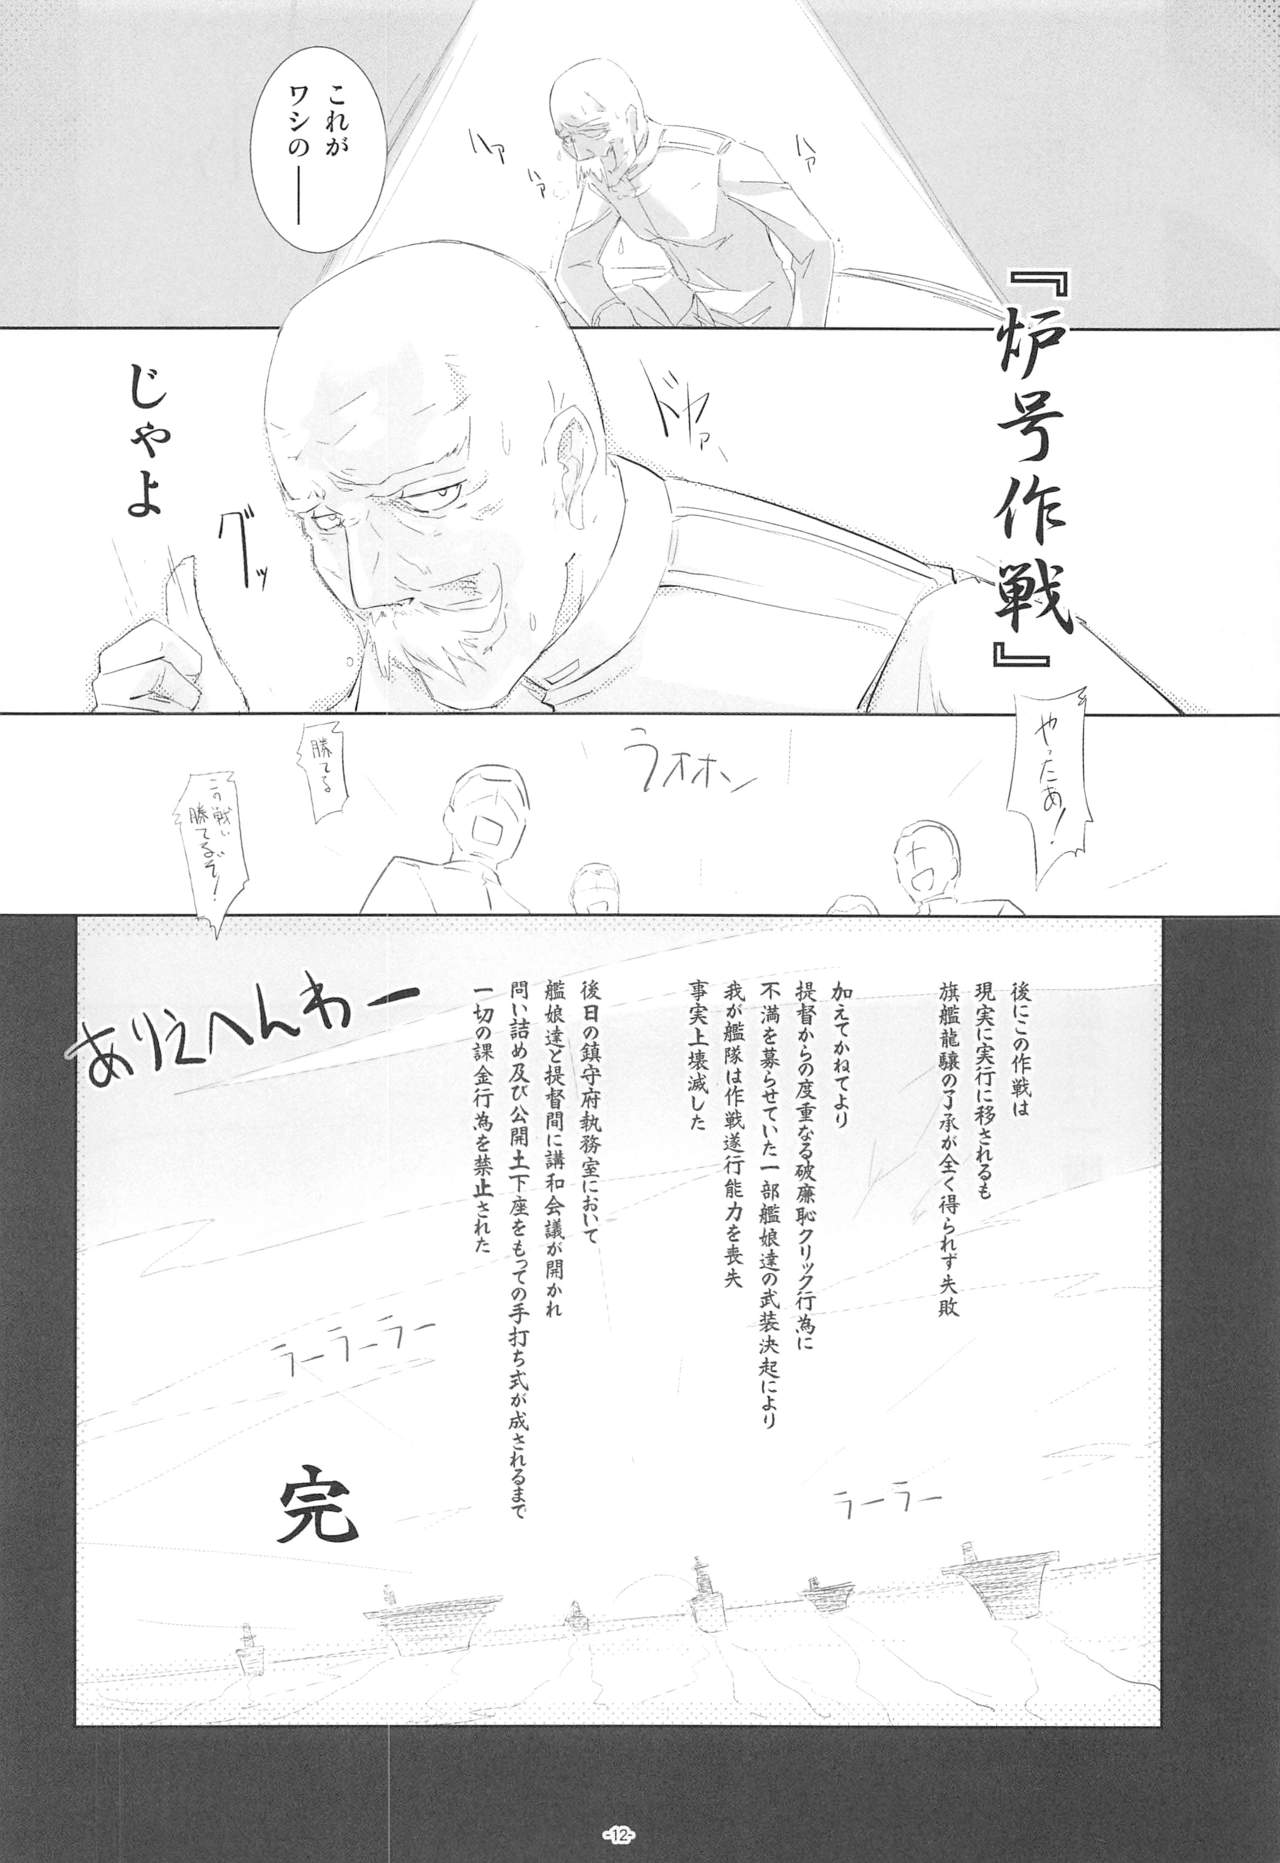 これが
ワシの――
ハァ
ハァ
ハァ
『炉号作戦』
じゃよ
ドヤァ
グッ
やったあ!
ウオホン
勝てる
この戦い
勝てるぞ!
後にこの作戦は
現実に実行に移されるも
旗艦龍驤の了承が全く得られず失敗
加えてかねてより
提督からの度重なる破廉恥クリック行為に
不満を募らせていた一部艦娘達の武装決起により
我が艦隊は作戦遂行能力を喪失
事実上壊滅した
後日の鎮守府執務室において
艦娘達と提督間に講和会議が開かれ
問い詰め及び公開土下座をもっての手打ち式が成されるまで
一切の課金行為を禁止された
ありえへんわー
ラーラーラー
ラーラー
完
-12-